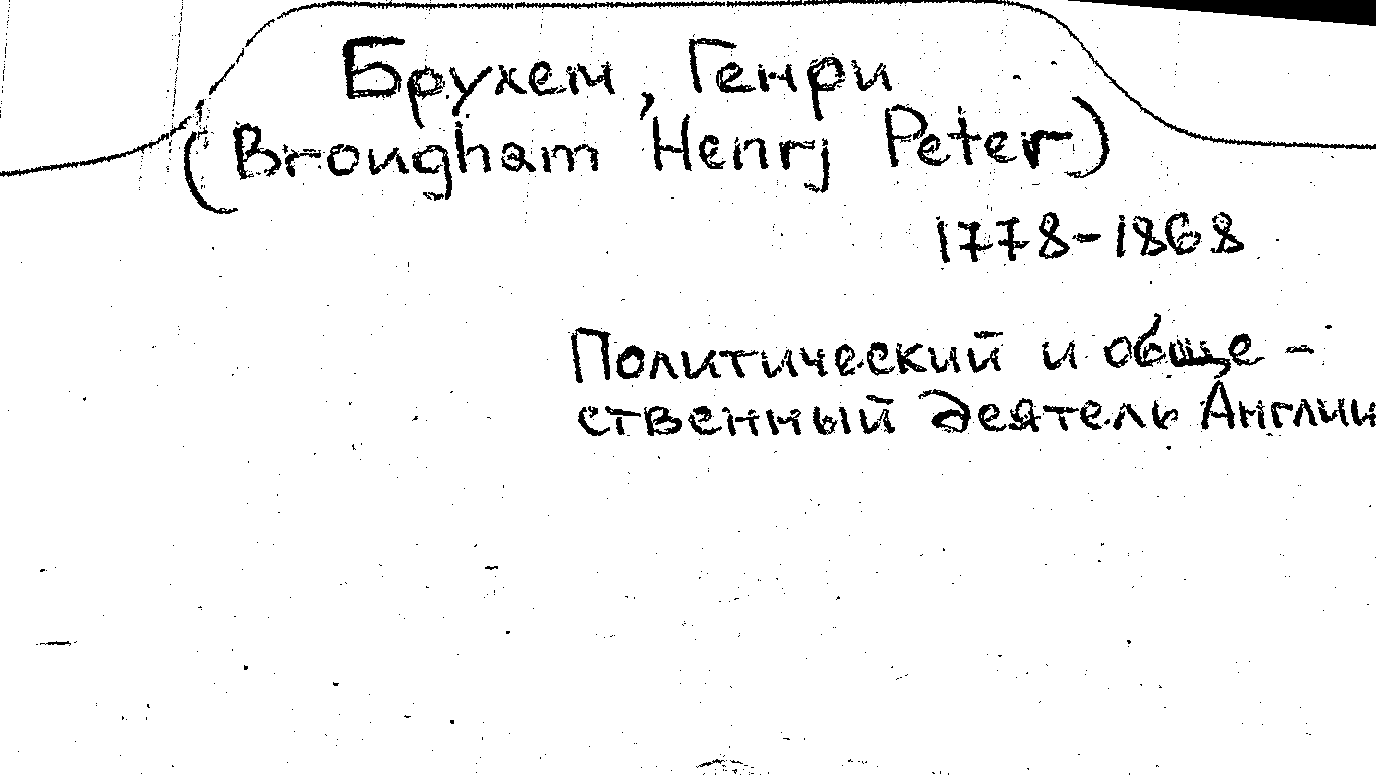 Брухем, Генри
(Brougham Henrj Peter)
1778-1868
Политический и обще-
ственный деятель Англии